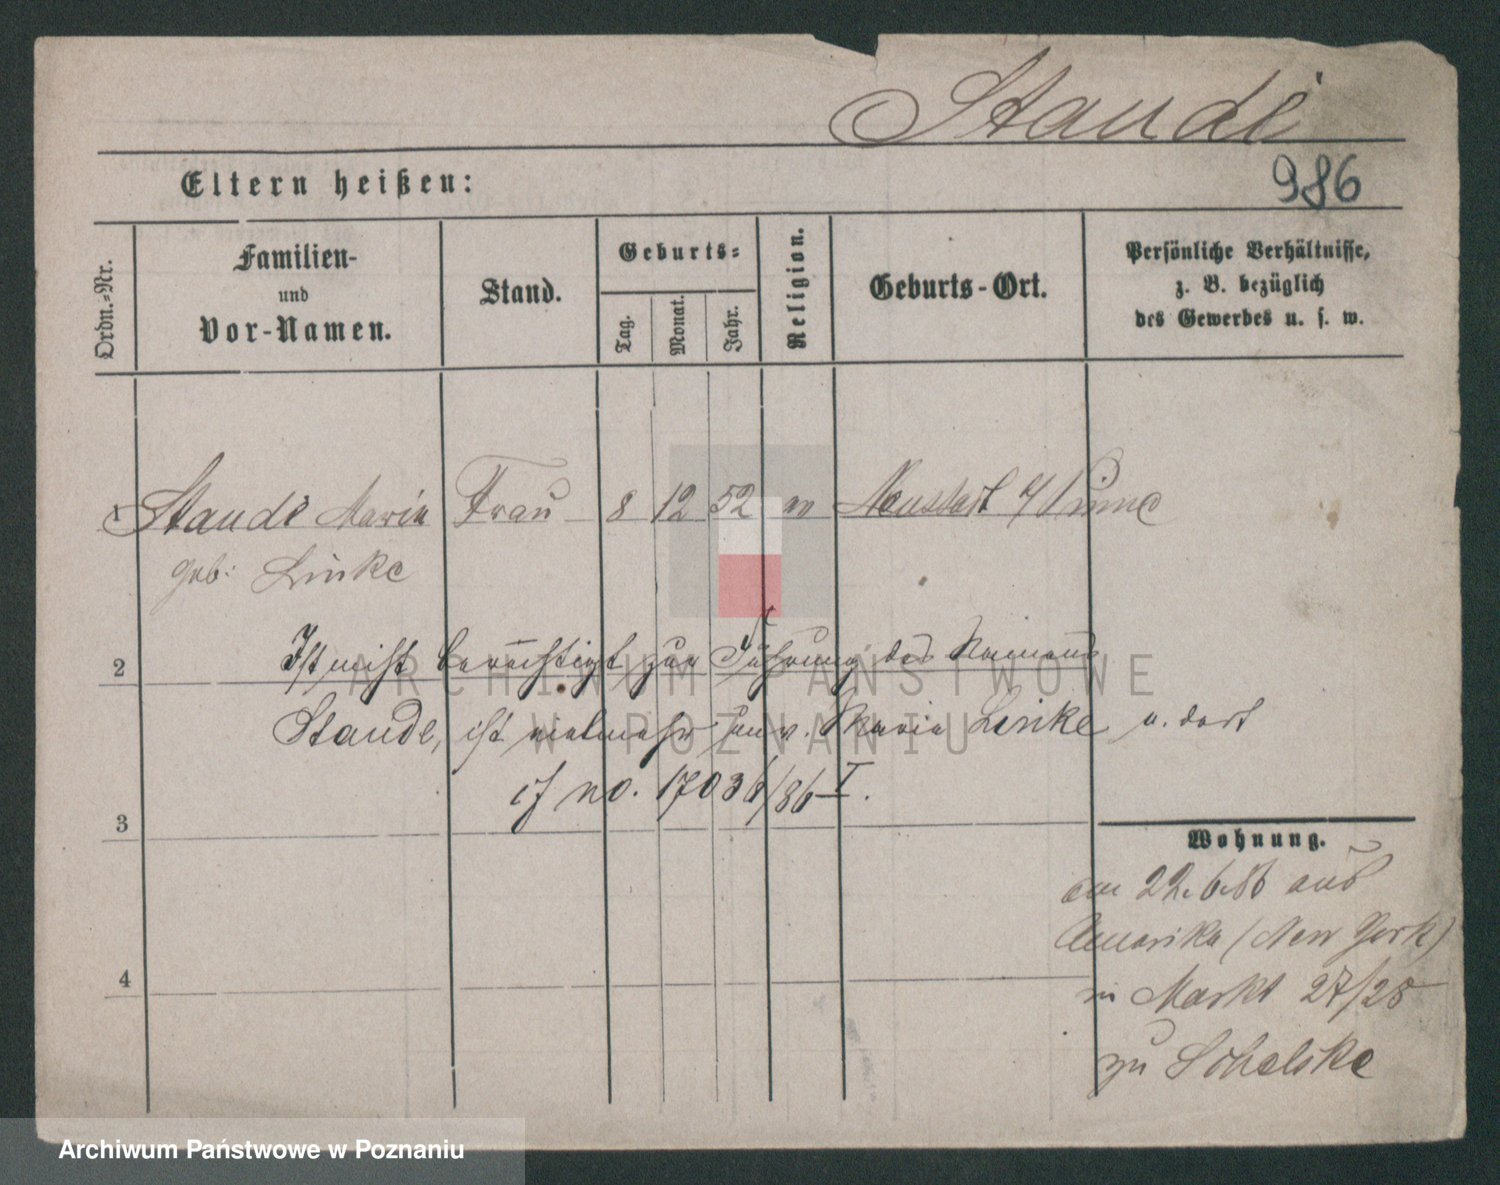 Staude
986
Eltern heißen:
Ordn.=Nr.
Familien-
und
Vor-Namen.
Stand.
Geburts=
Tag.
Monat.
Jahr.
Religion.
Geburts-Ort.
Persönliche Verhältnisse,
z. B. bezüglich
des Gewerbes u. s. w.
1 Staude Maria Frau 8 12 52 Neustadt b/Pinne
geb: Linke
2 Ist nicht berechtigt zur Führung des Namens
Staude, ist vielmehr unv. Maria Linke u. dort
cf no. 17036/86 I.
3
Wohnung.
am 22.6.86 aus
Amerika (New York)
in Markt 27/28
zu
4
ARCHIWUM PAŃSTWOWE
W POZNANIU
Archiwum Państwowe w Poznaniu